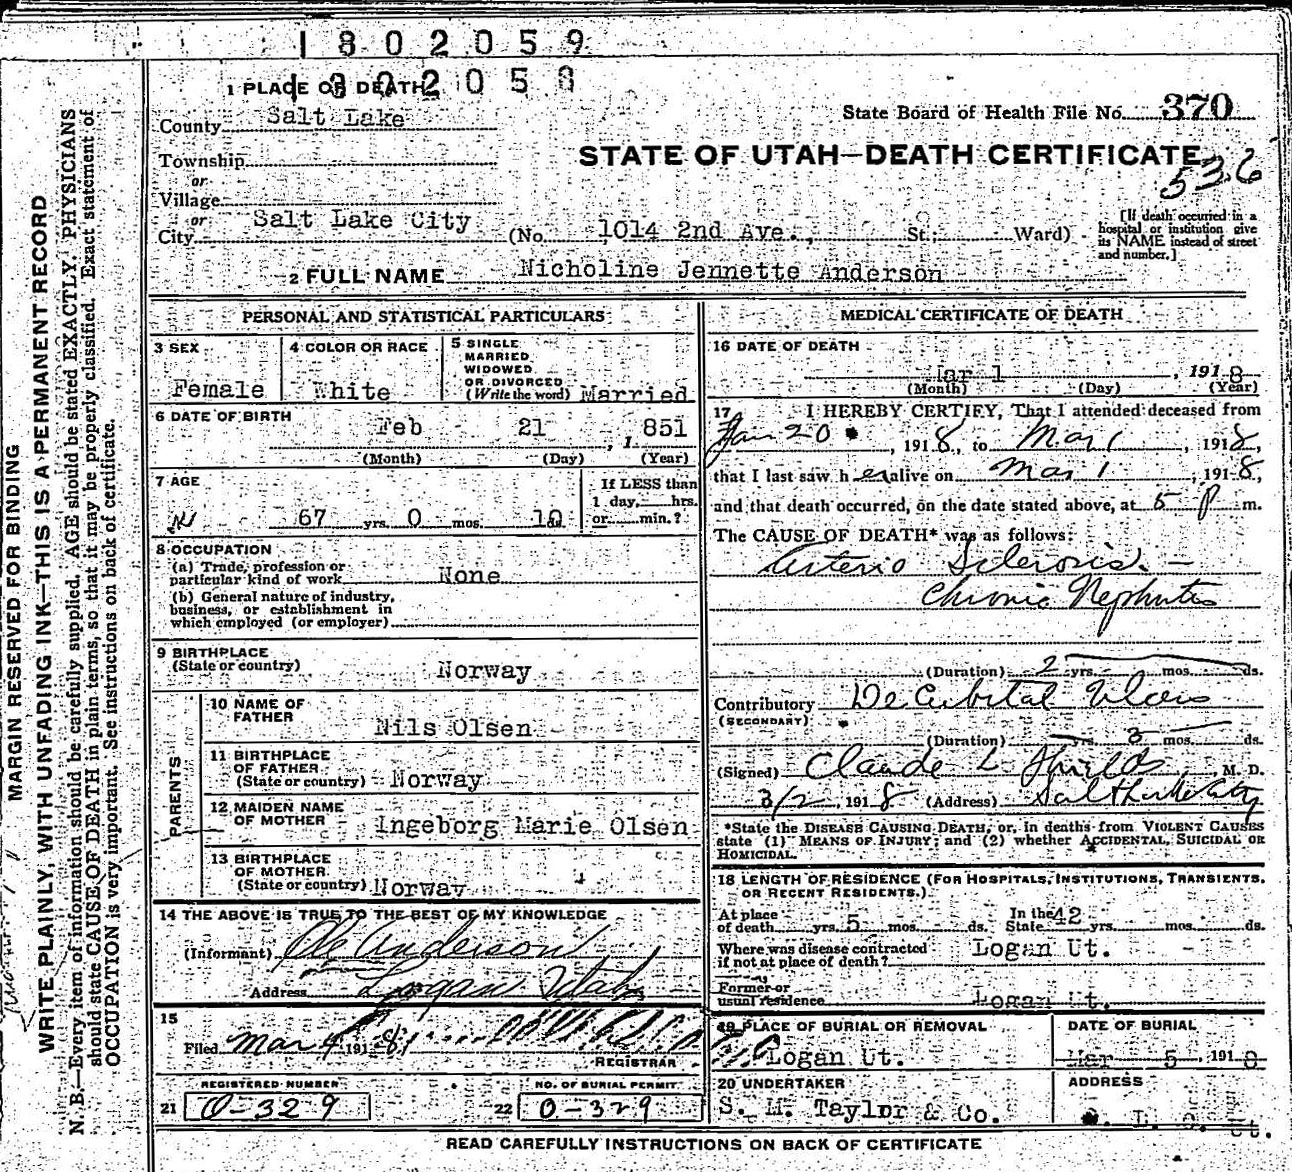 1802059
1302058
1 PLACE OF DEATH
County Salt Lake
State Board of Health File No. 370
Township
or
Village
or
City Salt Lake City (No. 1014 2nd Ave., St.; Ward)
STATE OF UTAH—DEATH CERTIFICATE
536
[If death occurred in a hospital or institution give its NAME instead of street and number.]
2 FULL NAME Nicholine Jennette Anderson
PERSONAL AND STATISTICAL PARTICULARS
3 SEX
Female
4 COLOR OR RACE
White
5 SINGLE
MARRIED
WIDOWED
OR DIVORCED
(Write the word) Married
6 DATE OF BIRTH
Feb 21, 1851
(Month) (Day) (Year)
7 AGE
67 yrs. 0 mos. 10 ds.
If LESS than
1 day, hrs.
or min.?
8 OCCUPATION
(a) Trade, profession or
particular kind of work None
(b) General nature of industry,
business, or establishment in
which employed (or employer)
9 BIRTHPLACE
(State or country) Norway
PARENTS
10 NAME OF
FATHER Nils Olsen
11 BIRTHPLACE
OF FATHER
(State or country) Norway
12 MAIDEN NAME
OF MOTHER Ingeborg Marie Olsen
13 BIRTHPLACE
OF MOTHER
(State or country) Norway
14 THE ABOVE IS TRUE TO THE BEST OF MY KNOWLEDGE
(Informant) Ole Anderson
Address Logan Utah
15
Filed Mar 4 1918
REGISTRAR
REGISTERED NUMBER
21 0-329
NO. OF BURIAL PERMIT
22 0-329
MEDICAL CERTIFICATE OF DEATH
16 DATE OF DEATH
Mar 1, 1918
(Month) (Day) (Year)
17 I HEREBY CERTIFY, That I attended deceased from
Jan 20, 1918, to Mar 1, 1918,
that I last saw her alive on Mar 1, 1918,
and that death occurred, on the date stated above, at 5 P m.
The CAUSE OF DEATH* was as follows:
Arterio Sclerosis. —
Chronic Nephritis
(Duration) 2 yrs. mos. ds.
Contributory Decubital Ulcers
(SECONDARY)
(Duration) yrs. 3 mos. ds.
(Signed) Claude L Shields, M. D.
3/2, 1918 (Address) Salt Lake City
*State the DISEASE CAUSING DEATH, or, in deaths from VIOLENT CAUSES
state (1) MEANS OF INJURY; and (2) whether ACCIDENTAL, SUICIDAL OR
HOMICIDAL.
18 LENGTH OF RESIDENCE (FOR HOSPITALS, INSTITUTIONS, TRANSIENTS,
OR RECENT RESIDENTS.)
At place
of death yrs. 5 mos. - ds. In the State 42 yrs. mos. ds.
Where was disease contracted
if not at place of death? Logan Ut.
Former or
usual residence Logan Ut.
19 PLACE OF BURIAL OR REMOVAL
Logan Ut.
DATE OF BURIAL
Mar 5, 1918
20 UNDERTAKER
S. M. Taylor & Co.
ADDRESS
S. L. C. Ut.
READ CAREFULLY INSTRUCTIONS ON BACK OF CERTIFICATE
MARGIN RESERVED FOR BINDING
WRITE PLAINLY, WITH UNFADING INK—THIS IS A PERMANENT RECORD
N. B.—Every item of information should be carefully supplied. AGE should be stated EXACTLY. PHYSICIANS
should state CAUSE OF DEATH in plain terms, so that it may be properly classified. Exact statement of
OCCUPATION is very important. See instructions on back of certificate.